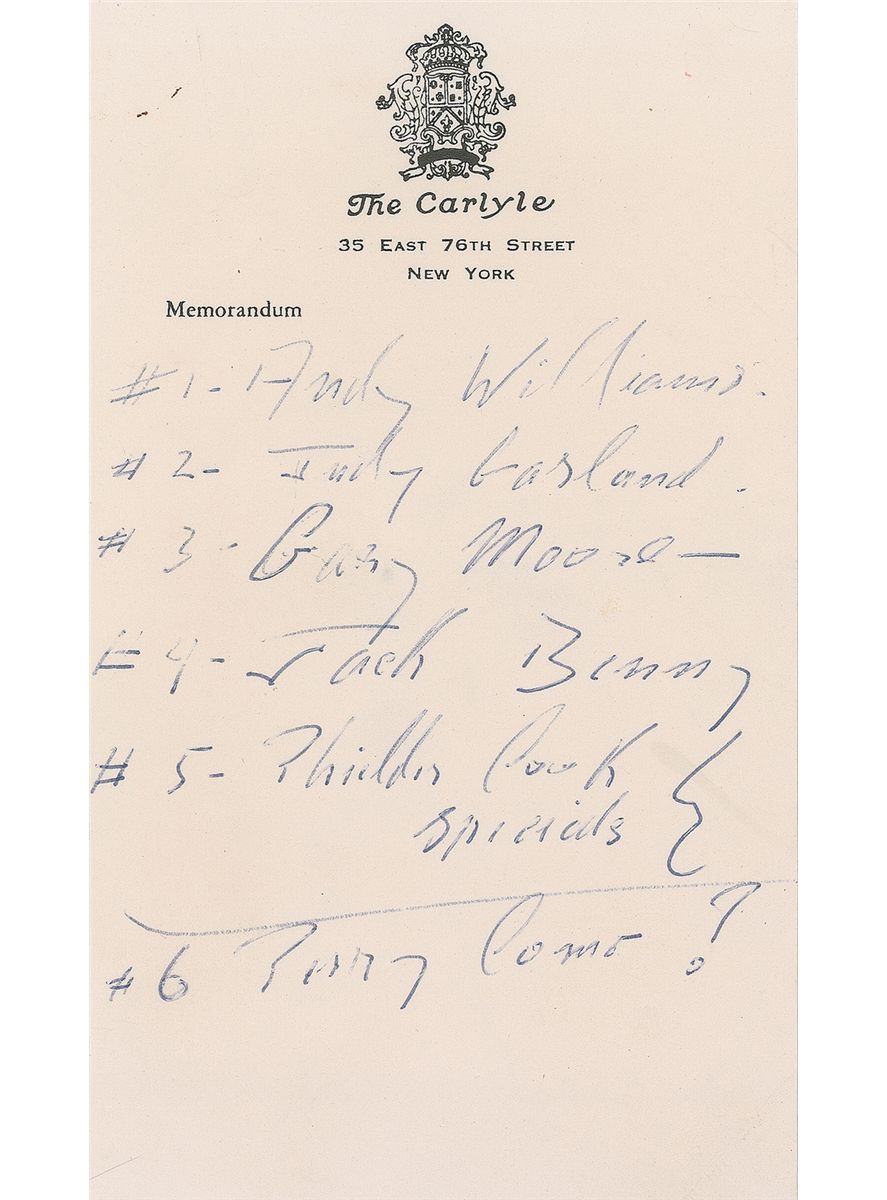 The Carlyle
35 East 76th Street
New York
Memorandum
#1- Andy Williams.
#2- Judy Garland.
#3- Gary Moore-
#4- Jack Benny
#5- Cook
specials }
#6 Perry Como ?